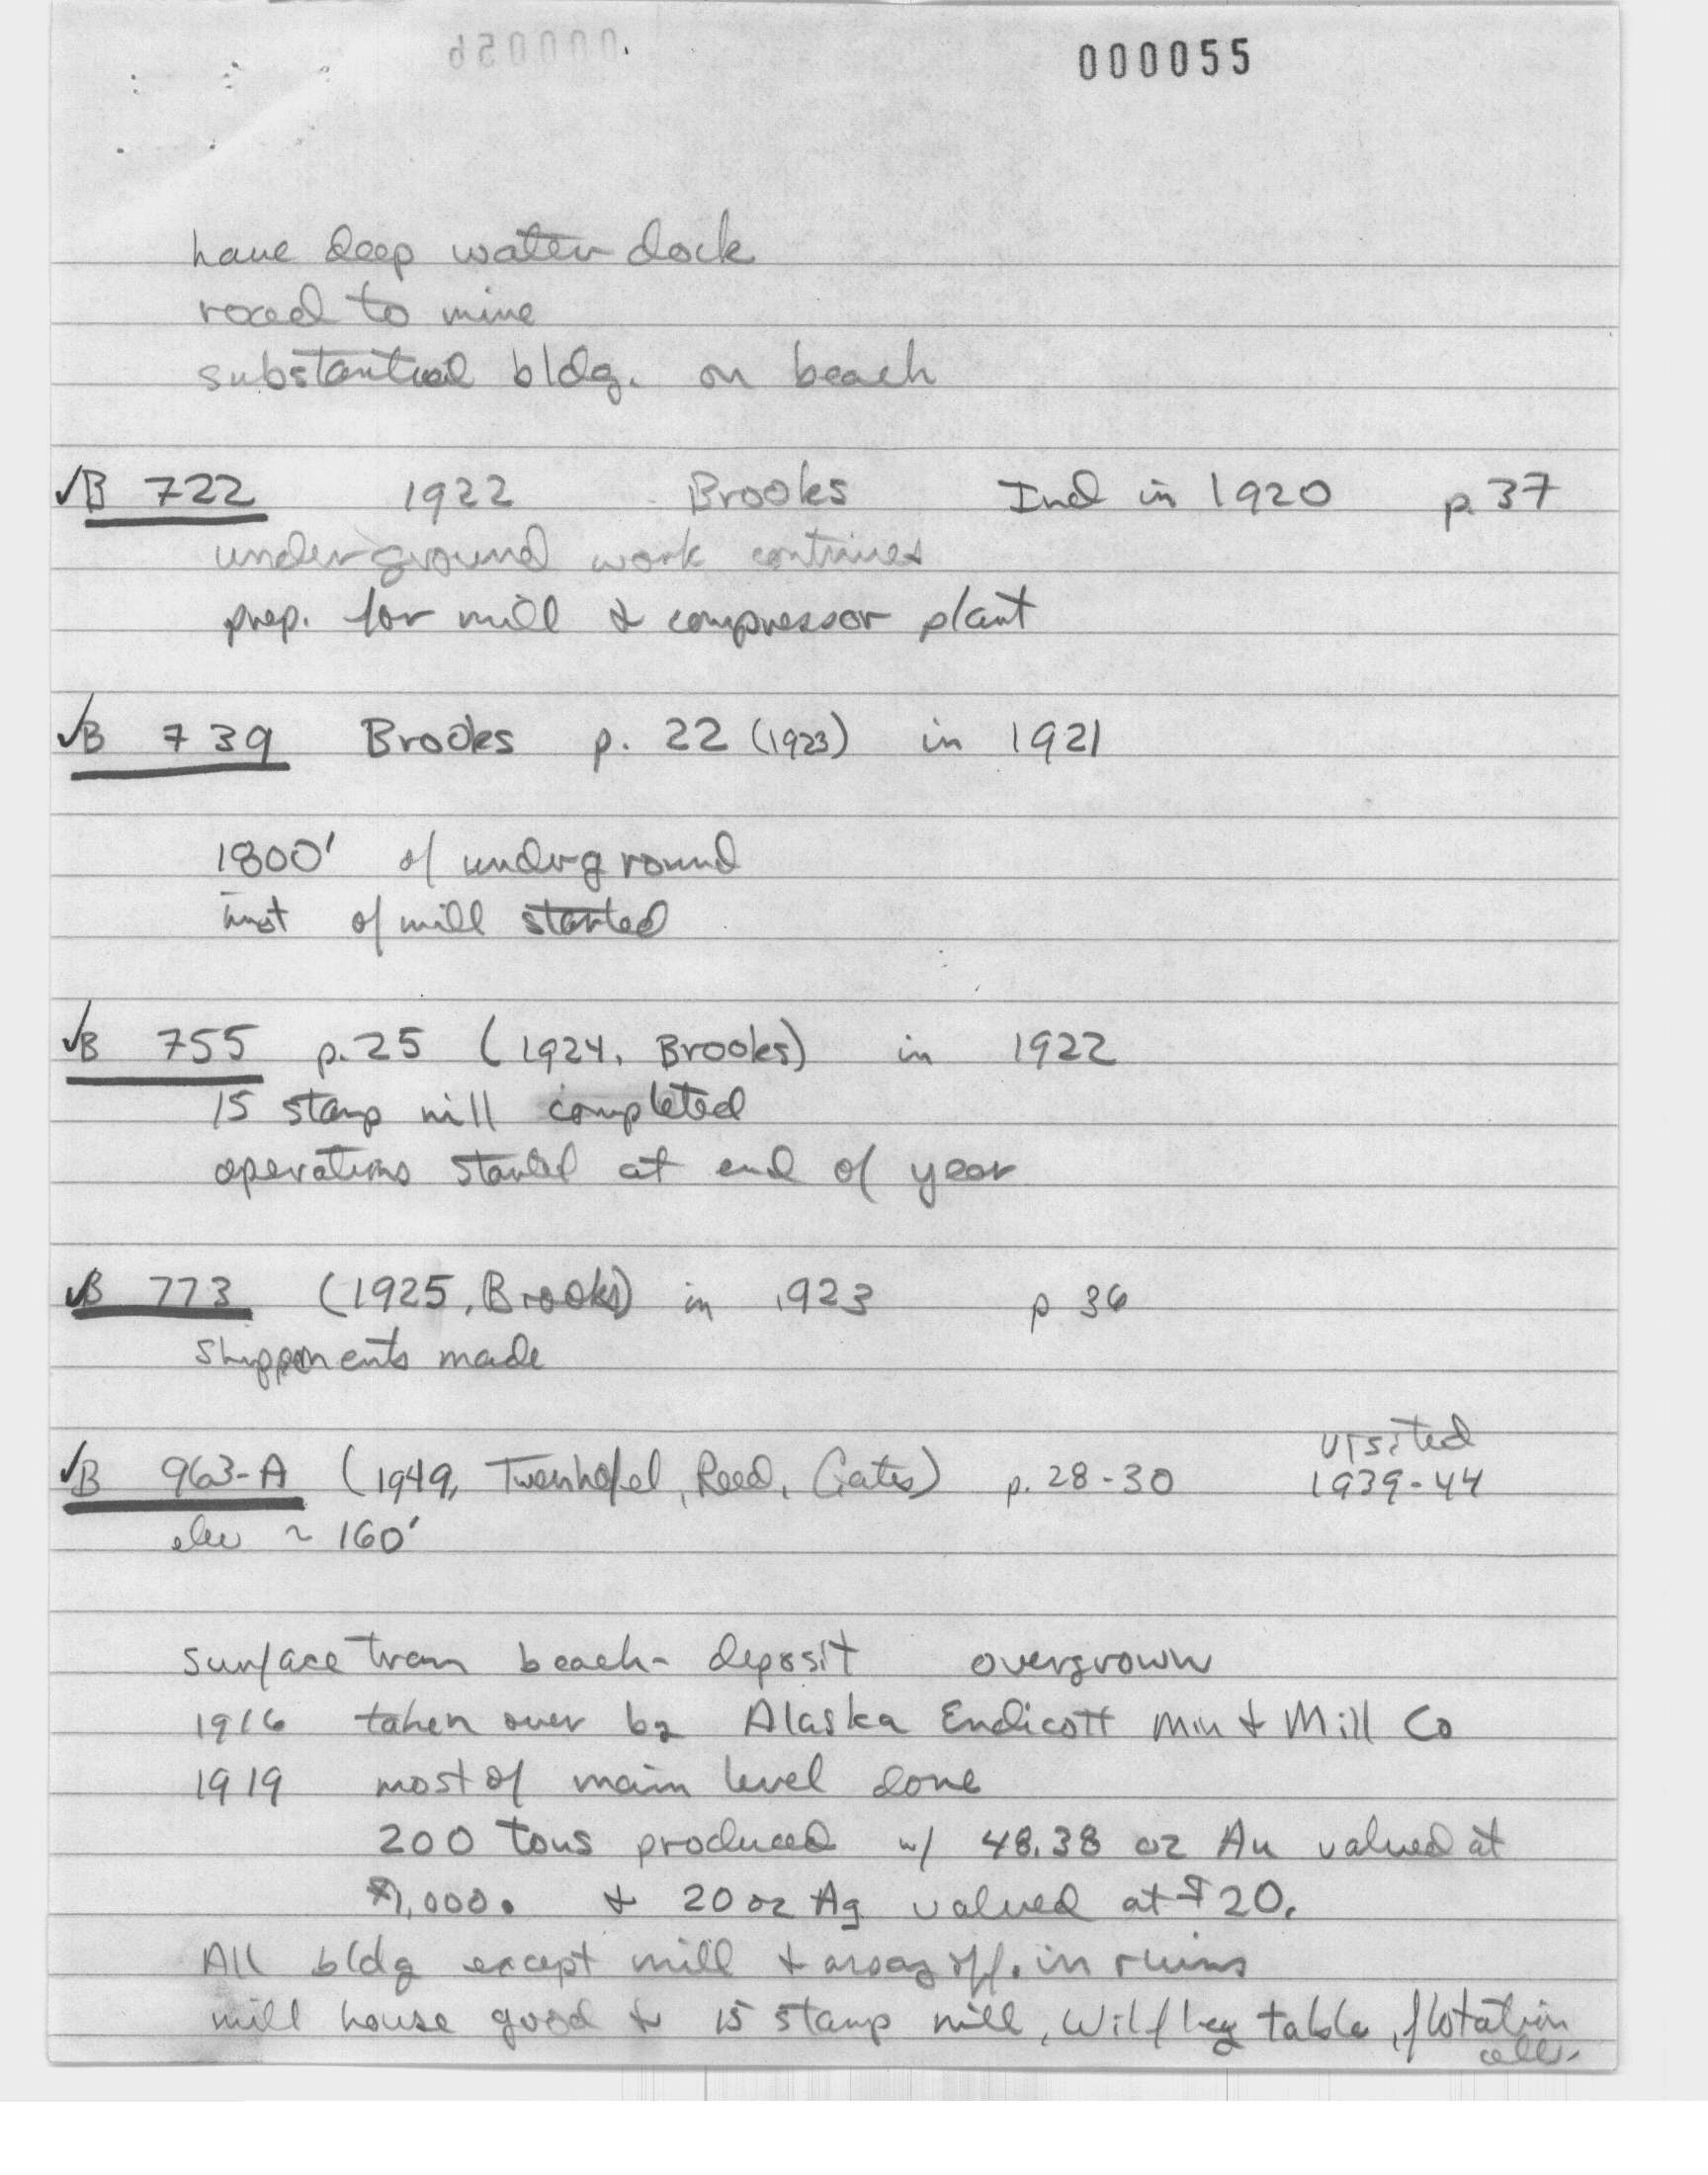 000055
have deep water dock
road to mine
substantial bldg. on beach
✓B 722 1922 Brooks Ind in 1920 p. 37
underground work continues
prep. for mill & compressor plant
✓B 739 Brooks p. 22 (1923) in 1921
1800' of underground
inst of mill started
✓B 755 p. 25 (1924, Brooks) in 1922
15 stamp mill completed
operations started at end of year
✓B 773 (1925, Brooks) in 1923 p 36
shippments made
visited
✓B 963-A (1949, Twenhofel, Reed, Gates) p. 28-30 1939-44
elev ~ 160'
surface tram beach - deposit overgrown
1916 taken over by Alaska Endicott Min & Mill Co
1919 most of main level done
200 tons produced w/ 48.38 oz Au valued at
$1,000. & 20 oz Ag valued at $20.
All bldg except mill & assay off. in ruins
mill house good & 15 stamp mill, Wilfley table, flotation
cells.